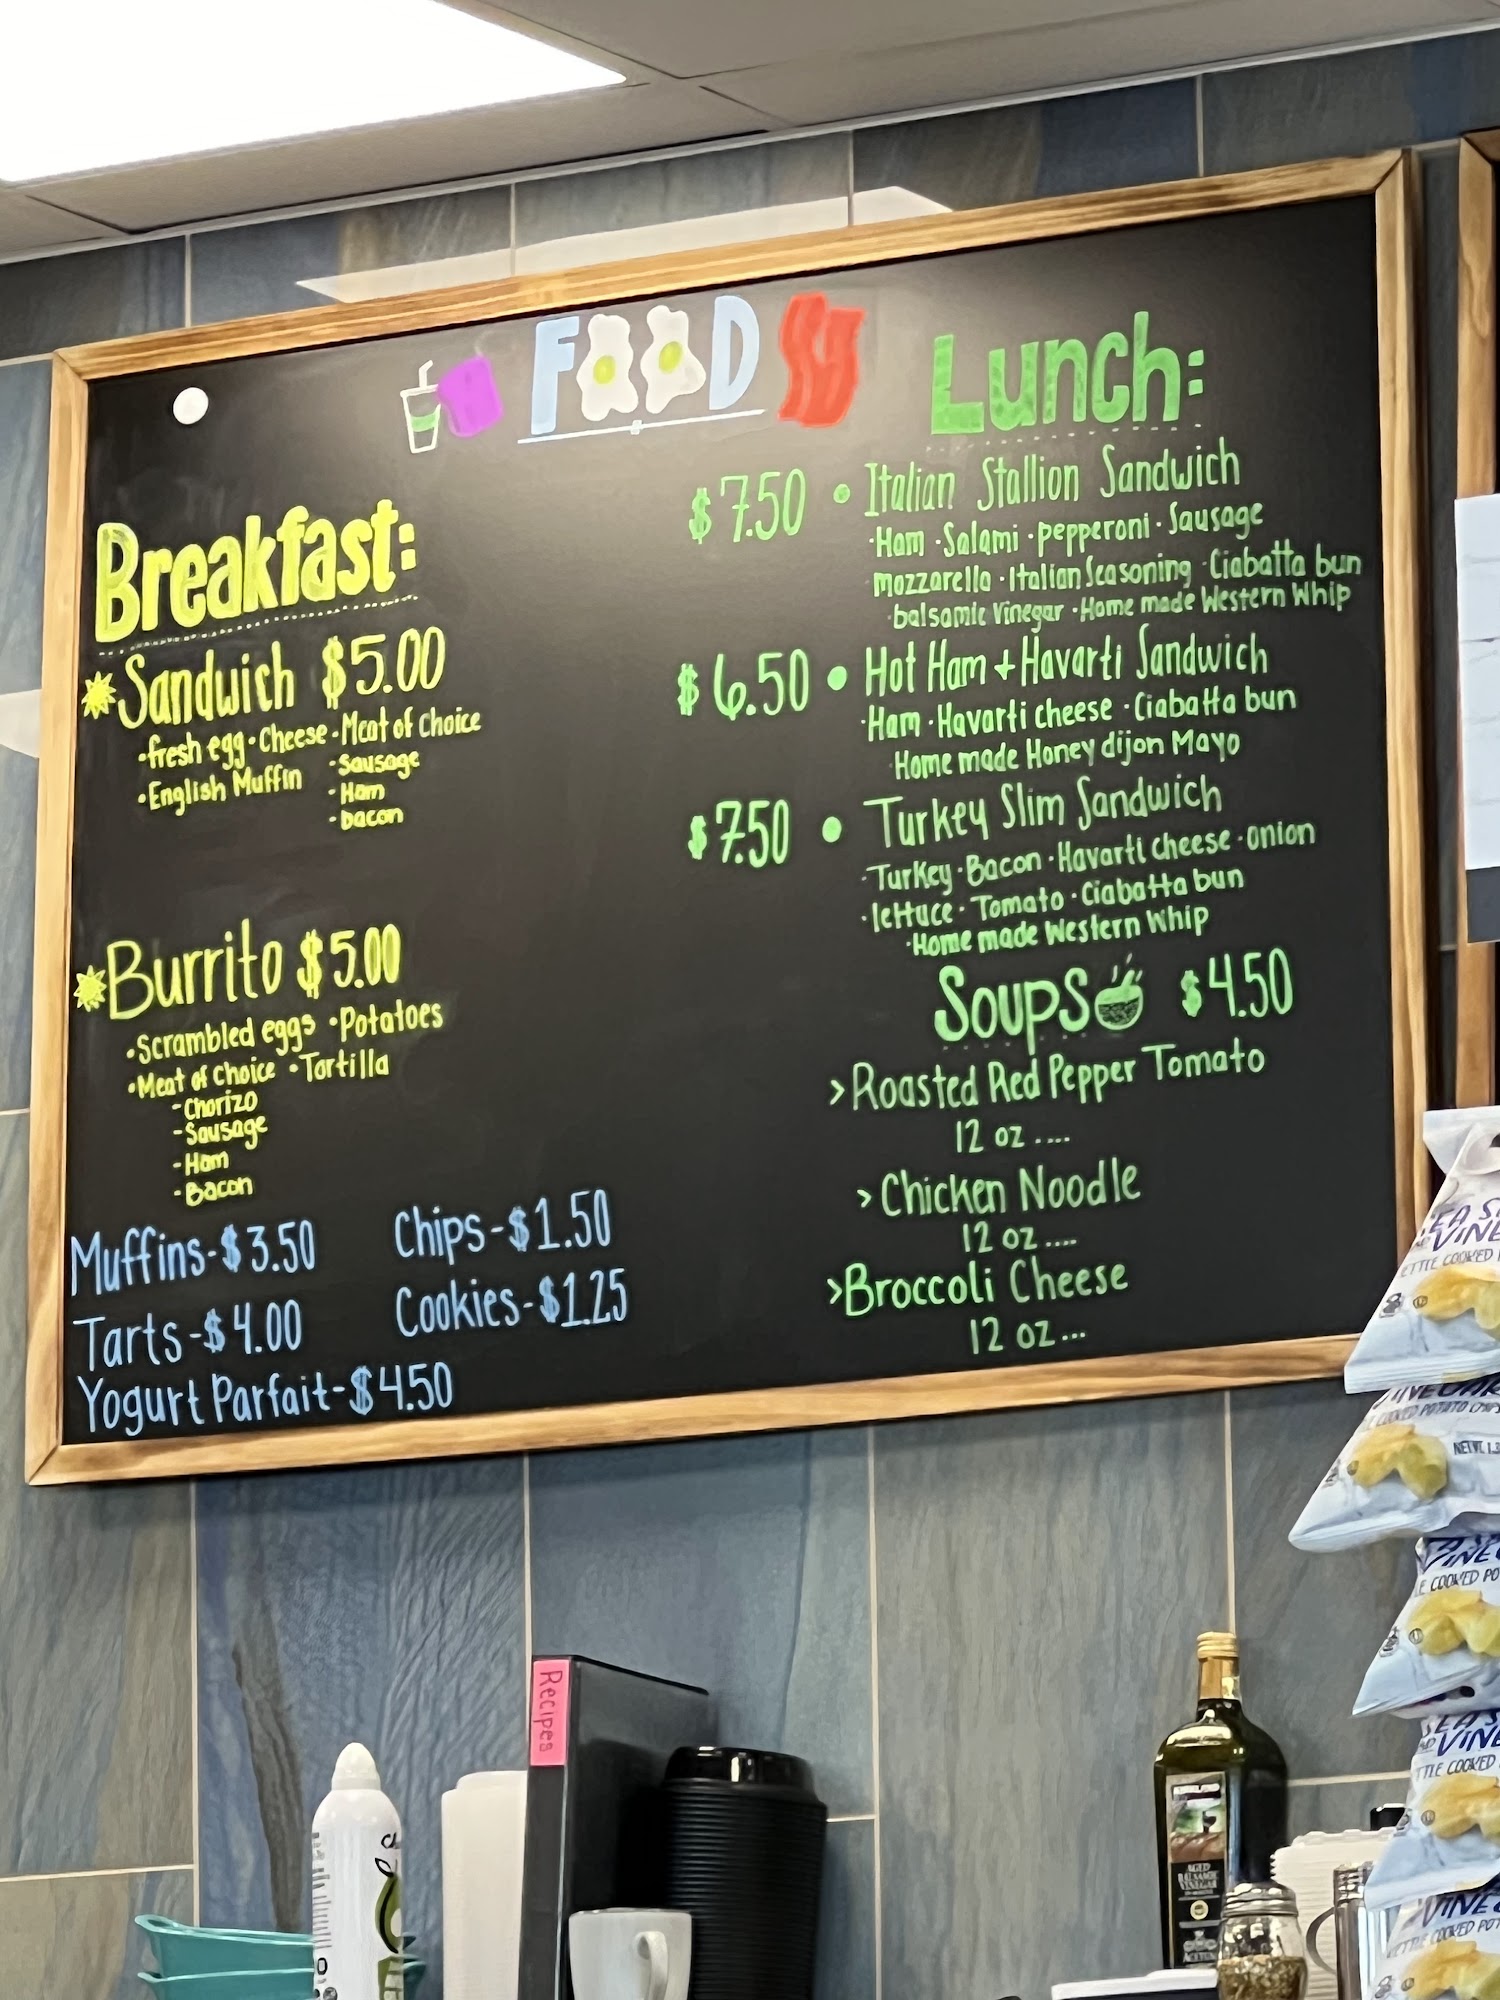 FOOD
Breakfast:
Sandwich $5.00
•fresh egg •Cheese •Meat of choice
•English Muffin
-Sausage
-Ham
-bacon
Burrito $5.00
•Scrambled eggs •Potatoes
•Meat of Choice •Tortilla
-Chorizo
-Sausage
-Ham
-Bacon
Muffins-$3.50
Tarts-$4.00
Yogurt Parfait-$4.50
Chips-$1.50
Cookies-$1.25
Lunch:
$7.50 • Italian Stallion Sandwich
•Ham •Salami •pepperoni •Sausage
mozzarella •Italian Seasoning •Ciabatta bun
•balsamic Vinegar •Home made Western Whip
$6.50 • Hot Ham + Havarti Sandwich
•Ham •Havarti cheese •Ciabatta bun
Home made Honey dijon Mayo
$7.50 • Turkey Slim Sandwich
•Turkey •Bacon •Havarti cheese •onion
•lettuce •Tomato •Ciabatta bun
•Home made Western Whip
Soups $4.50
>Roasted Red Pepper Tomato
12 oz ....
>Chicken Noodle
12 oz ....
>Broccoli Cheese
12 oz...
Recipes
KIRKLAND
AGED
BALSAMIC
VINEGAR